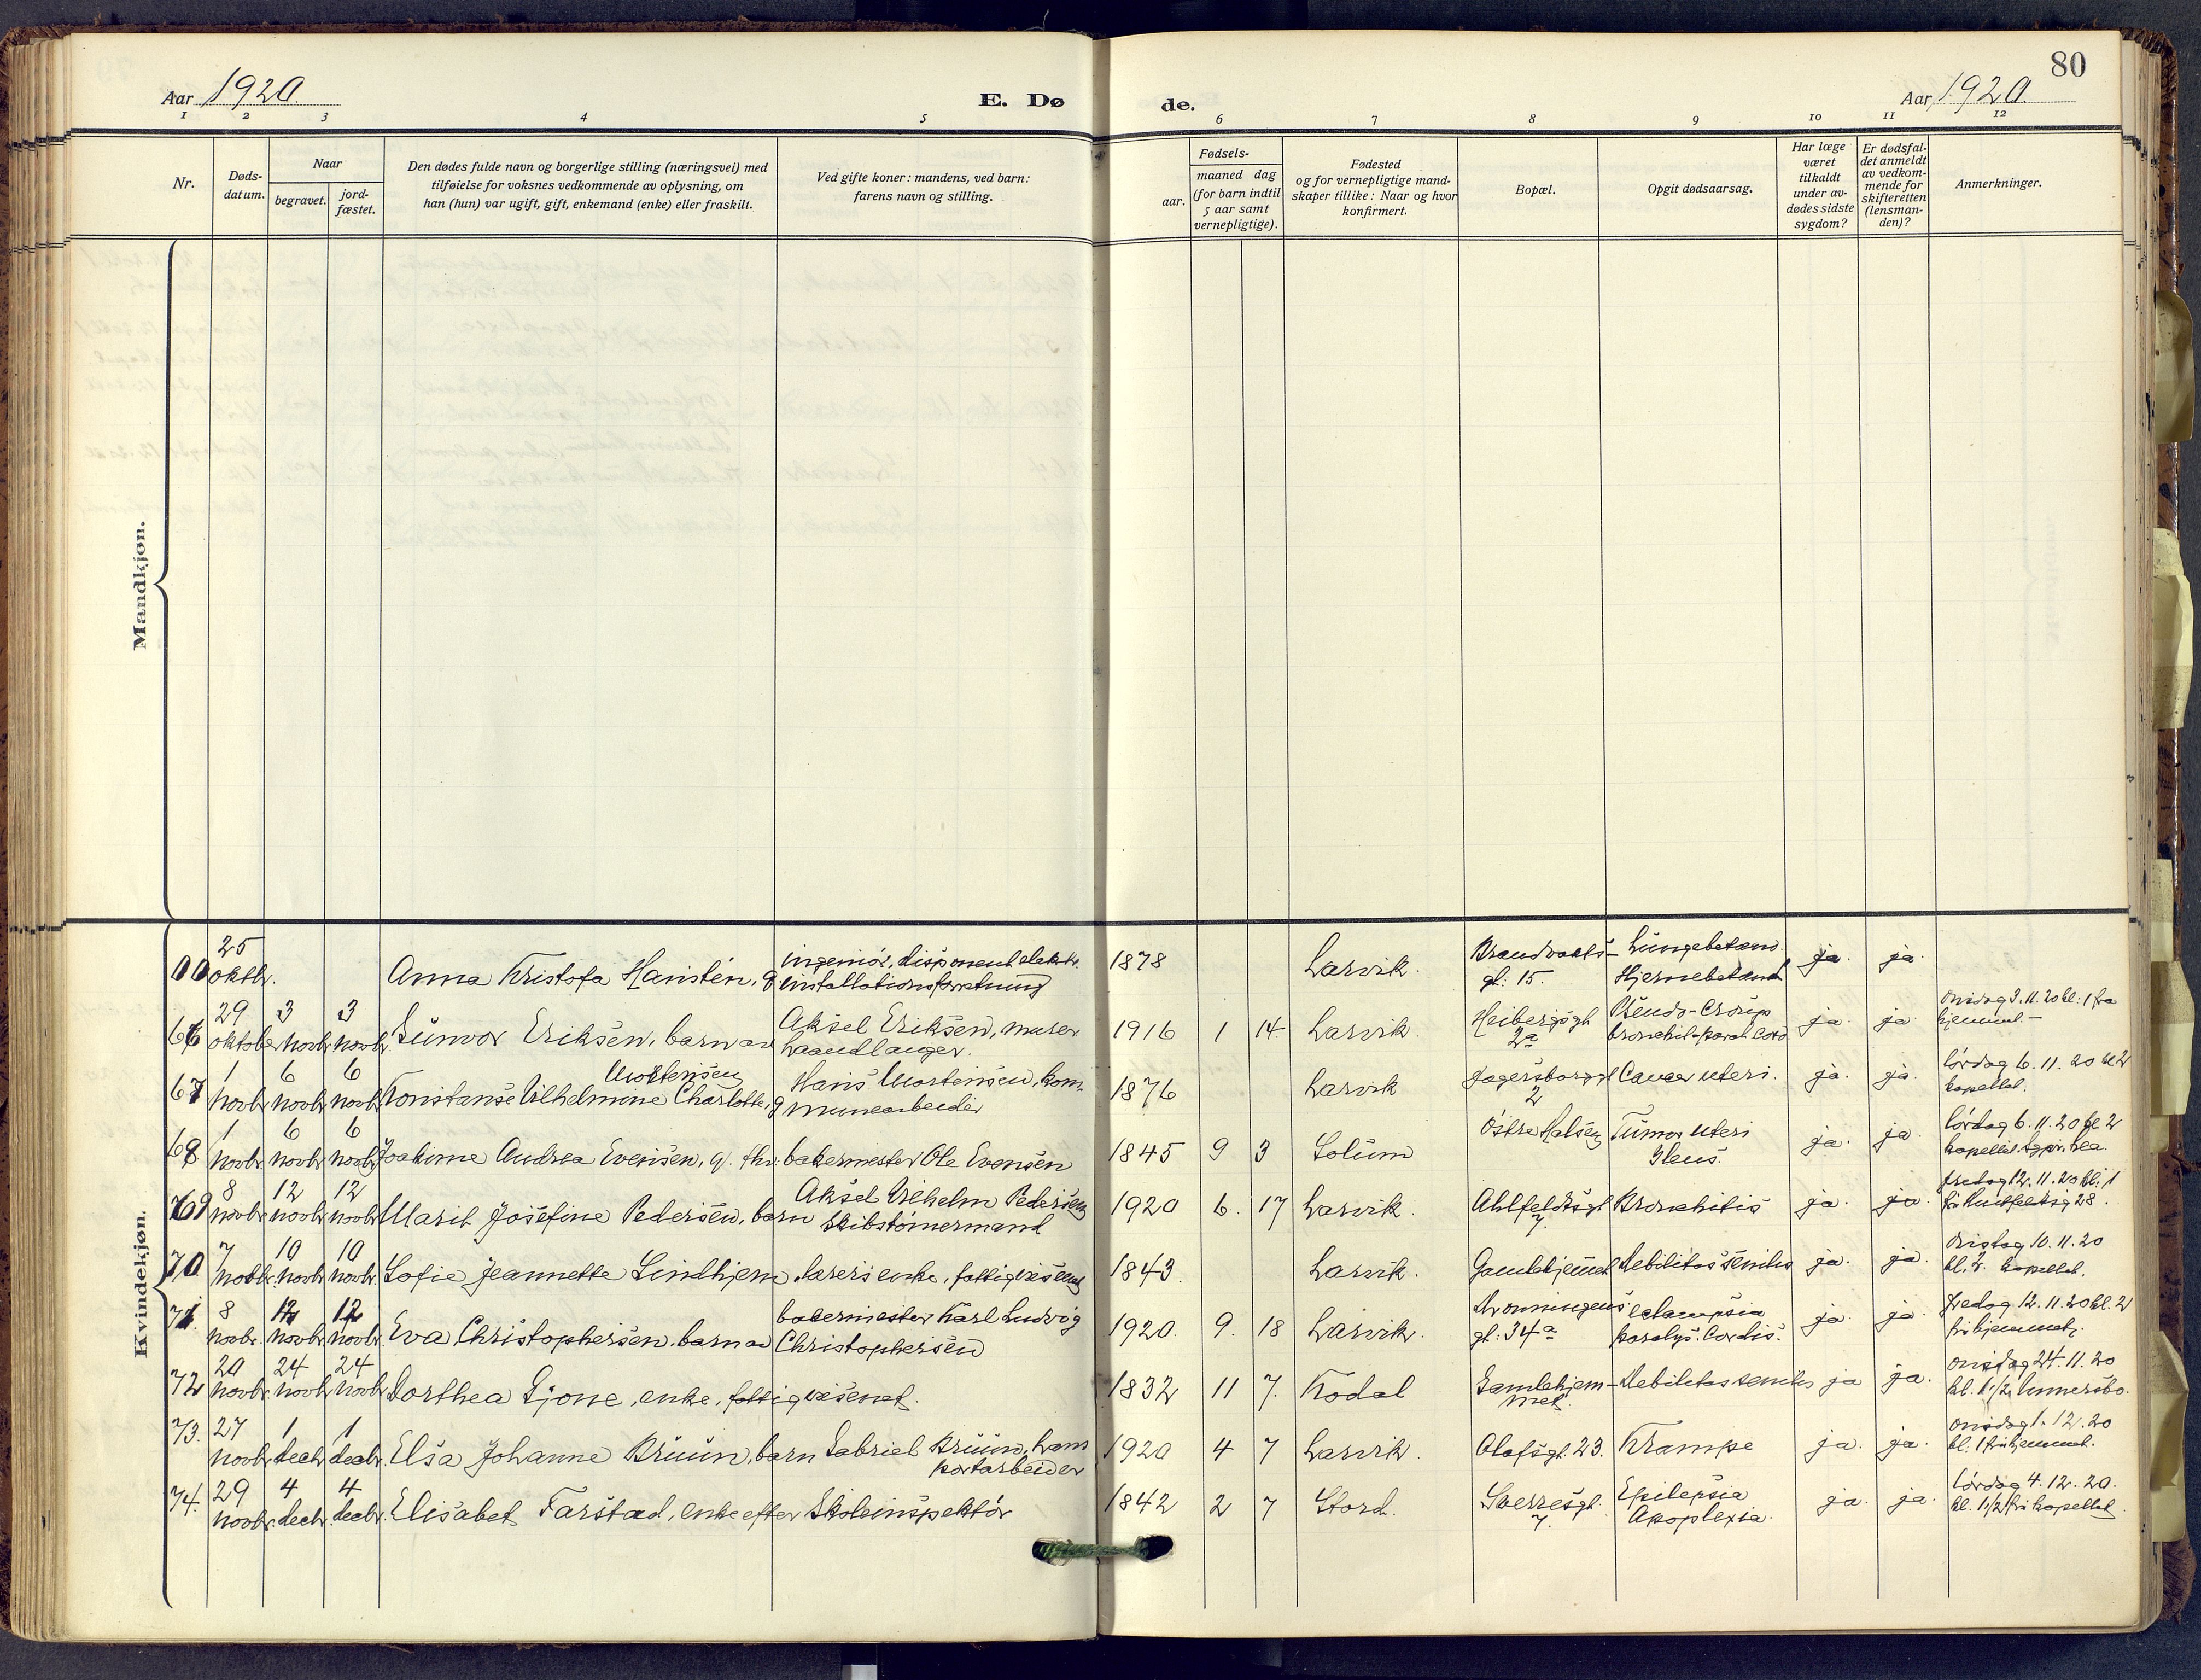 80
Aar 1920.
E. Dø
de.
Aar 1920.
1 2 3 4 5 6 7 8 9 10 11 12
Nr.
Døds-
datum.
Naar
begravet.
jord-
fæstet.
Den dødes fulde navn og borgerlige stilling (næringsvei) med
tilføielse for voksnes vedkommende av oplysning, om
han (hun) var ugift, gift, enkemand (enke) eller fraskilt.
Ved gifte koner: mandens, ved barn:
farens navn og stilling.
Fødsels-
aar.
maaned dag
(for barn indtil
5 aar samt
vernepligtige).
Fødested
og for vernepligtige mand-
skaper tillike: Naar og hvor
konfirmert.
Bopæl.
Opgit dødsaarsag.
Har læge
været
tilkaldt
under av-
dødes sidste
sygdom?
Er dødsfal-
det anmeldt
av vedkom-
mende for
skifteretten
(lensman-
den)?
Anmerkninger.
Mandkjøn.
Kvindekjøn.
25
oktbr. Anna Kristofa Hanstén, g. ingeniør, disponent elektr.
installationsforretning 1878 Larvik. gt: 15. Lungebetænd.
Hjernebetænd. ja. ja.
66 29 oktober 3 novbr. 3 novbr. Gunvor Eriksen, barn av Aksel Eriksen, murer
haandlanger. 1916 1 14. Larvik. Heibergsgt
2a Pseudo-Croup
ja. ja. Onsdag 3.11.20 kl: 1 fra
hjemmet.-
67 1 novbr. 6 novbr. 6 novbr. Konstanse Vilhelmine Charlotte, g
Mortensen Hans Mortensen, kom-
munearbeider 1876 Larvik Jegersborggt
2 Cancer uteri. ja. ja. Lördag 6.11.20 kl 2
kapellet.
68 1 novbr. 6 novbr. 6 novbr. Joakime Andrea Evensen, g. bakermester Ole Evensen 1845 9 3 Solum Östre Halsen Tumor uteri
Ileus. ja. ja. Lördag 6.11.20 kl 2
kapellet.
69 8 novbr. 12 novbr. 12 novbr. Marit Josefine Pedersen, barn Aksel Vilhelm Pedersen
skibstömermand 1920 6. 17 Larvik. Ahlfeldtsgt
7 Bronchitis ja. ja. fredag 12.11.20 kl. 1
28.
70. 7 novbr. 10 novbr. 10 novbr. Sofie Jeannette Lindhjem, enke, fattigvesenet 1843. Larvik. Gamlehjemmet Debilitas senilis ja. ja. Onsdag 10.11.20
kl. 2. kapellet.
71 8 novbr. 12 novbr. 12 novbr. Eva Christophersen, barn av bakermester Karl Ludvig
Christophersen 1920. 9. 18 Larvik. Dronningens
gt: 34a eclampsia
paralys. Cordis. ja. ja. fredag 12.11.20 kl. 2
fra hjemmet.
72 20 novbr. 24 novbr. 24 novbr. Dorthea Gjone, enke, fattigvesenet. 1832 11 7. Kodal Gamlehjem-
met. Debilitas senilis ja ja. Onsdag 24.11.20
73. 27 novbr. 1 decbr. 1 decbr. Elsa Johanne Bruun, barn Gabriel Bruun, trans-
portarbeider 1920 4 7 Larvik. Olafsgt. 23. Krampe ja. ja. onsdag 1.12.20
kl. 1 fra hjemmet.
74. 29 novbr. 4 decbr. 4 decbr. Elisabet Farstad, enke efter Skoleinspektör 1842 2 7 Stord. Sverresgt.
7. Epilepsia
Apoplexia. ja. ja. Lördag 4.12.20.
kl. 1 1/2 fra kapellet.